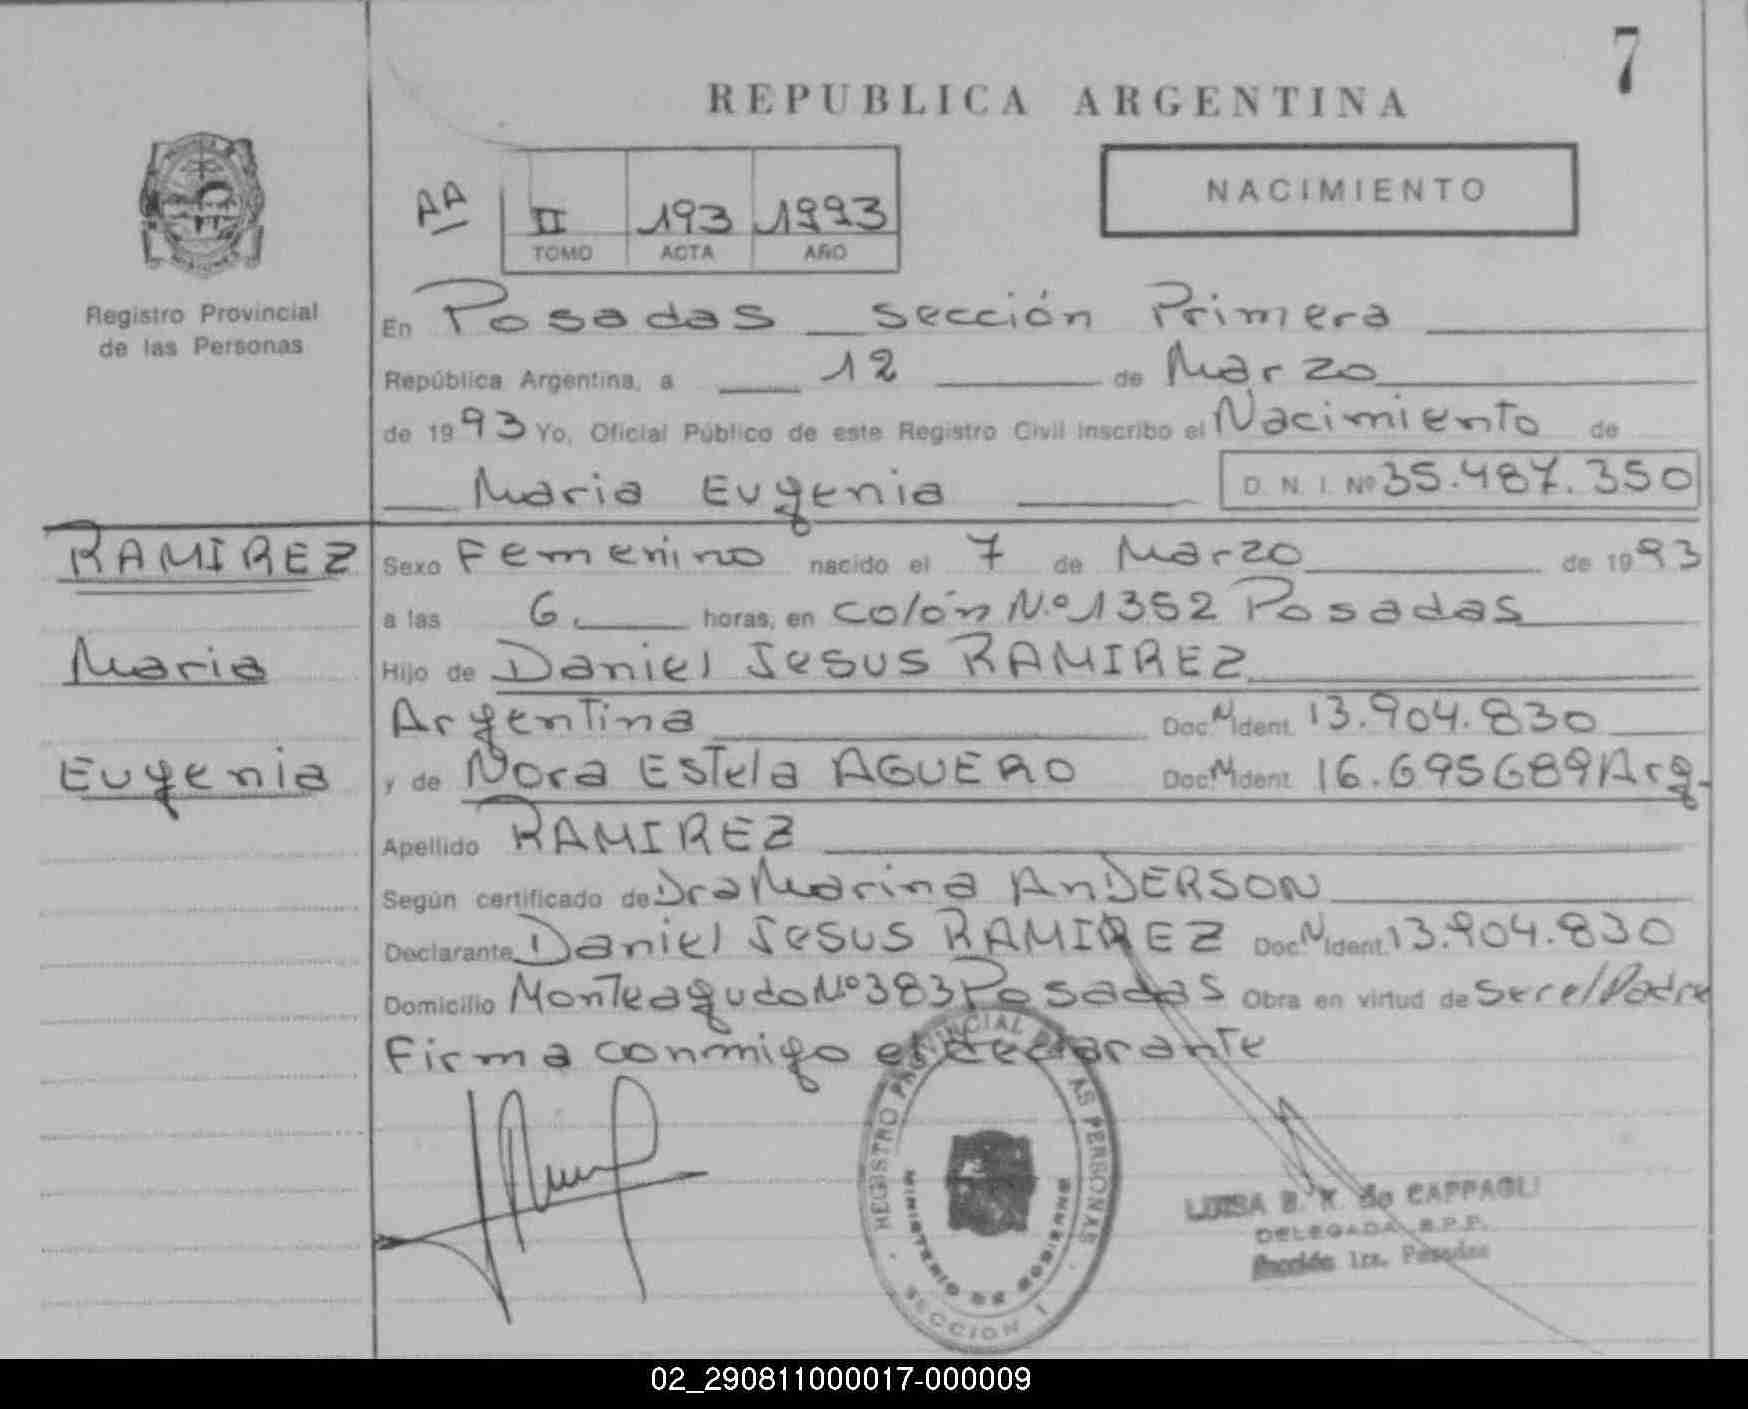 7
REPUBLICA ARGENTINA
NACIMIENTO
AA
II 193 1993
TOMO ACTA AÑO
Registro Provincial
de las Personas
En Posadas sección Primera
República Argentina, a 12 de Marzo
de 1993 Yo, Oficial Público de este Registro Civil inscribo el Nacimiento de
Maria Eugenia D. N. I. Nº 35.487.350
RAMIREZ
Maria
Eugenia
Sexo Femenino nacido el 7 de Marzo de 1993
a las 6. horas, en colón N.º 1352 Posadas
Hijo de Daniel Jesus RAMIREZ
Argentina Doc. N Ident. 13.904.830
y de Nora Estela AGUERO Doc. N Ident. 16.695689 Arg.
Apellido RAMIREZ
Según certificado de Dra Marina AnDERSON
Declarante Daniel Jesus RAMIREZ Doc. N Ident. 13.904.830
Domicilio Monteagudo Nº 383 Posadas Obra en virtud de Ser el Padre
Firma conmigo el declarante
REGISTRO PROVINCIAL DE LAS PERSONAS
MINISTERIO DE GOBIERNO
SECCION 1
LUISA B. K. de CAPPAGLI
DELEGADA R.P.P.
Sección 1ra. Posadas
02_290811000017-000009